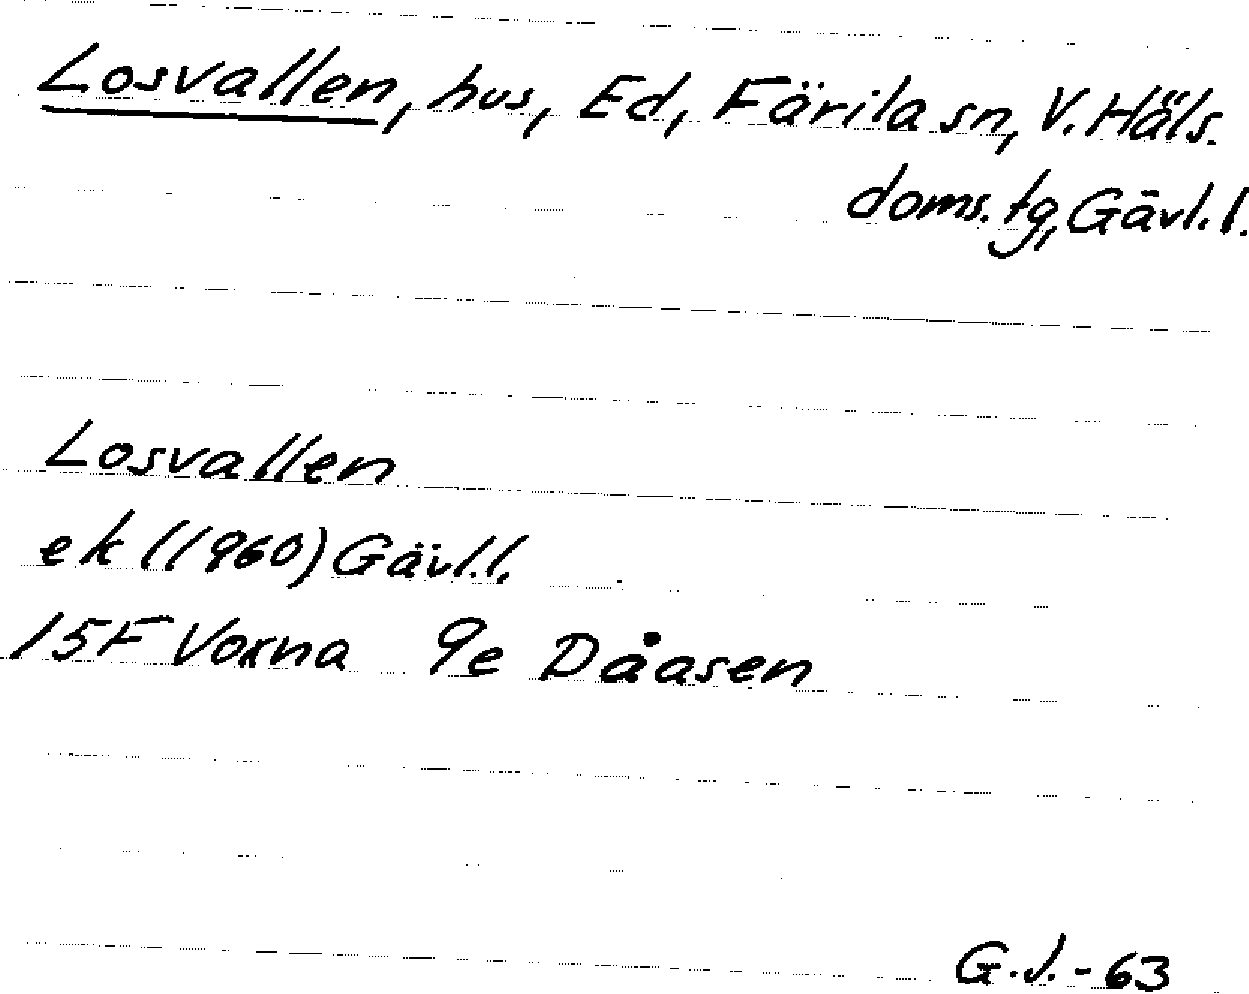 Losvallen, hus, Ed, Färila sn, V. Häls.
doms. tg, Gävl. l.
Losvallen
ek (1960) Gävl. l.
15F Voxna 9e Dåasen
G.J.-63